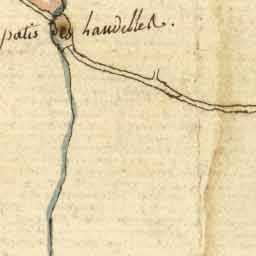 patis des haudelles.